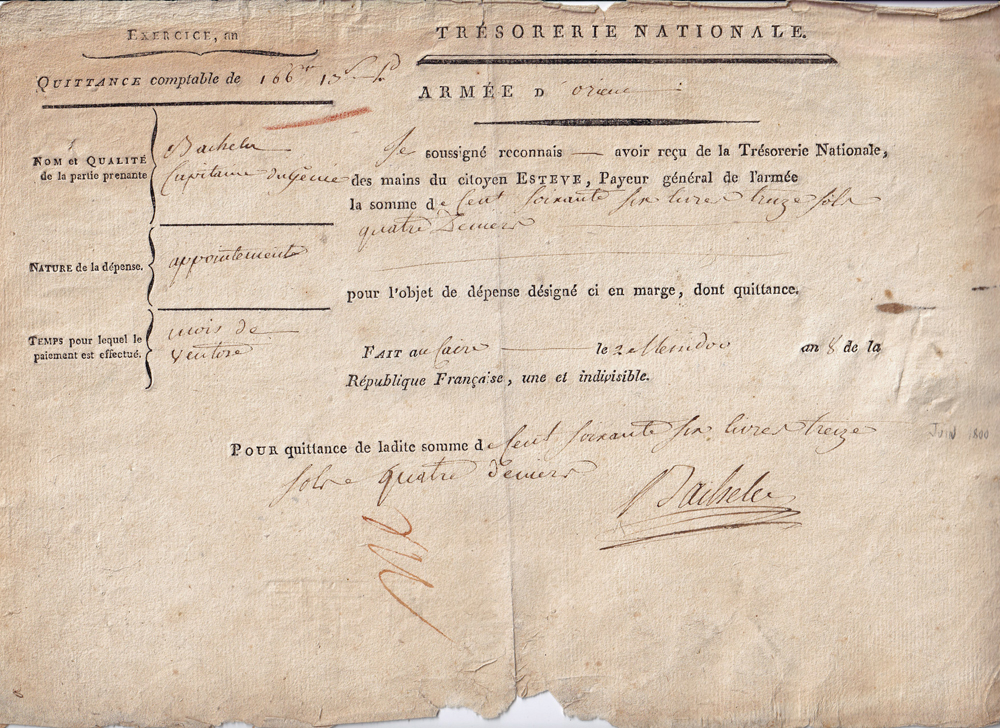 EXERCICE, an
TRÉSORERIE NATIONALE.
QUITTANCE comptable de 166 13 4
ARMÉE D'orient
NOM et QUALITÉ
de la partie prenante
Bachelu
Capitaine du génie
Je soussigné reconnais avoir reçu de la Trésorerie Nationale,
des mains du citoyen ESTEVE, Payeur général de l'armée
la somme de Cent soixante six livres treize sols
quatre Deniers
NATURE de la dépense.
appointements
pour l'objet de dépense désigné ci en marge, dont quittance.
TEMPS pour lequel le
paiement est effectué.
mois de
Ventose
FAIT au Caire le 2 Messidor an 8 de la
République Française, une et indivisible.
POUR quittance de ladite somme de Cent soixante six livres treize
sols quatre deniers
Bachelu
Juin 1800